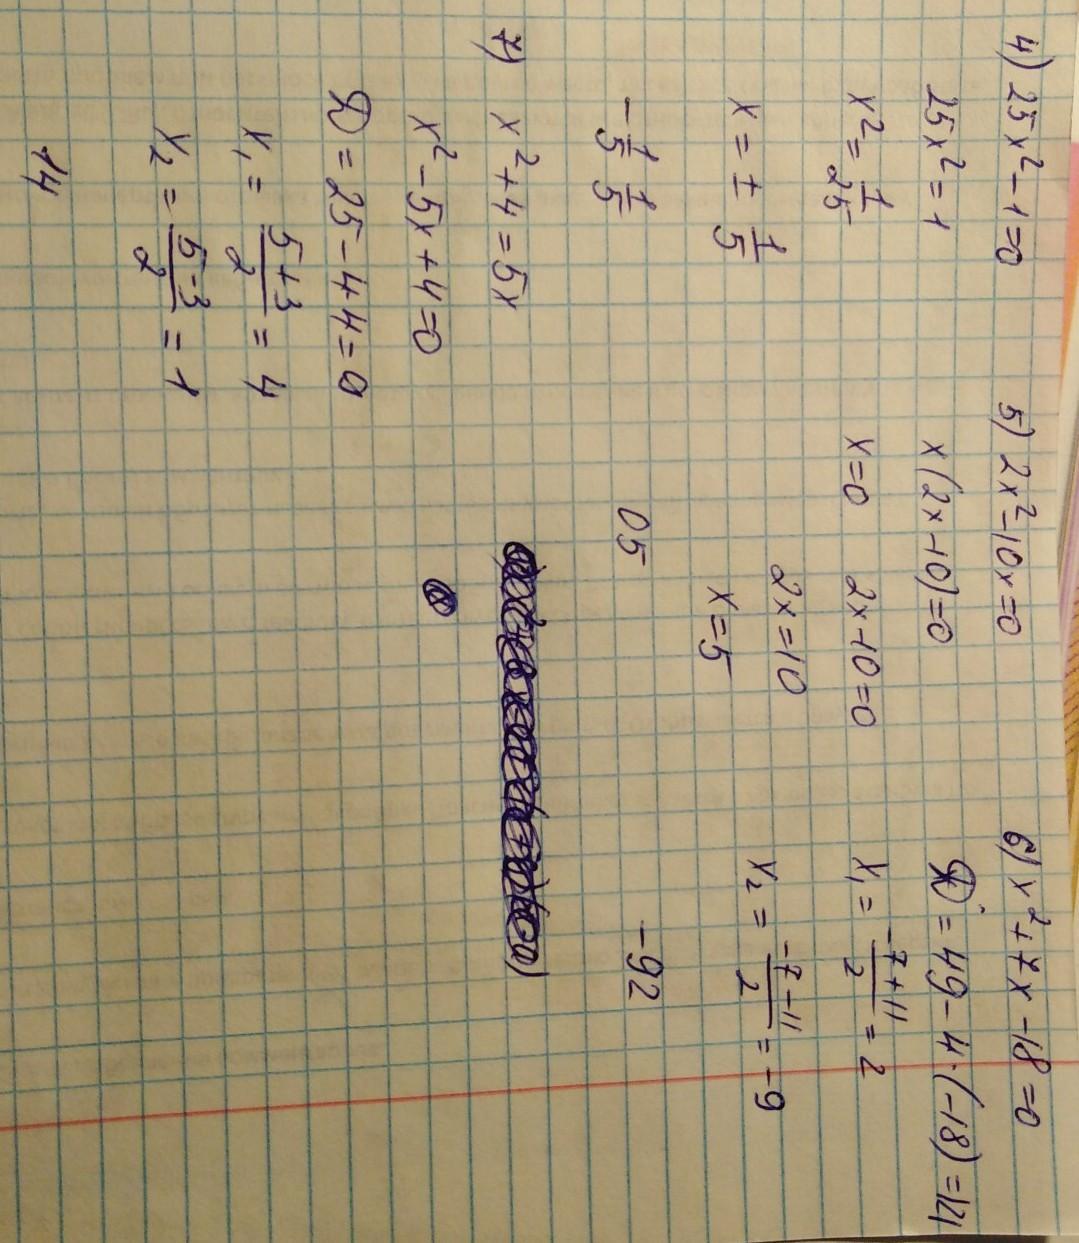 4) 25x² - 1 = 0
25x² = 1
x² = 1/25
x = ± 1/5
-1/5 1/5
5) 2x² - 10x = 0
x(2x - 10) = 0
x = 0 2x - 10 = 0
2x = 10
x = 5
05
6) x² + 7x - 18 = 0
D = 49 - 4·(-18) = 121
x₁ = (-7 + 11)/2 = 2
x₂ = (-7 - 11)/2 = -9
-92
7) x² + 4 = 5x
x² - 5x + 4 = 0
D = 25 - 4·4 = 9
x₁ = (5 + 3)/2 = 4
x₂ = (5 - 3)/2 = 1
14